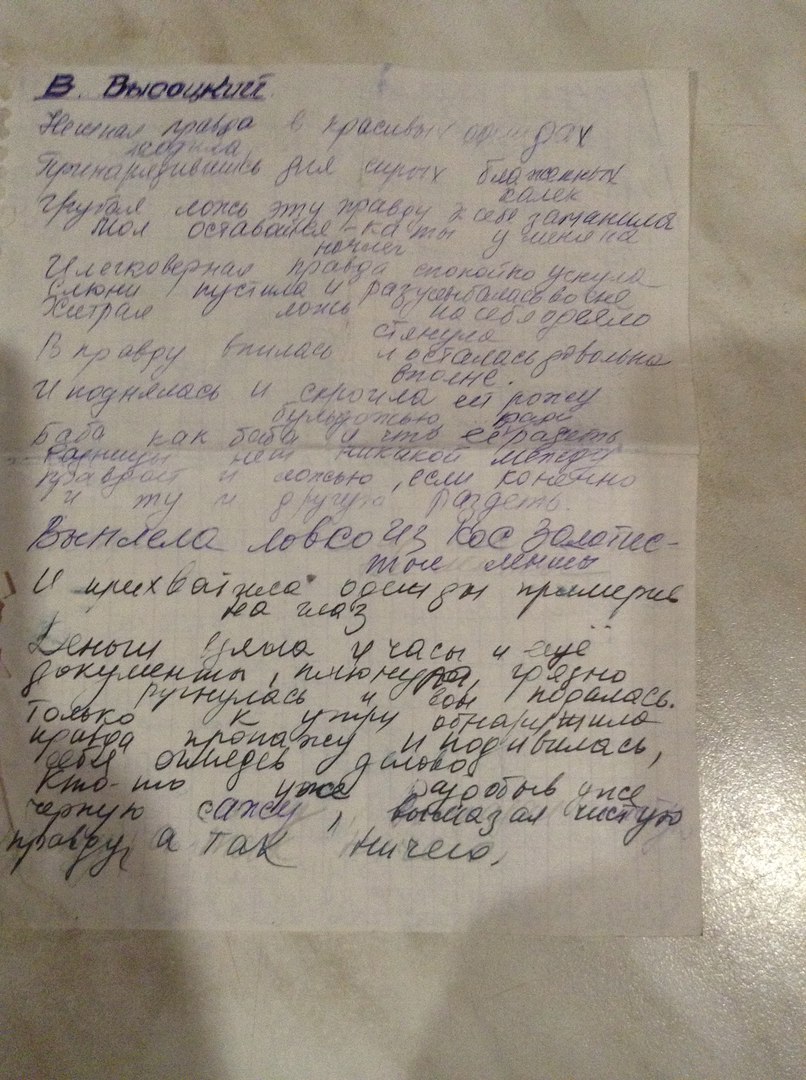 В. Высоцкий
Нежная правда в красивых одеждах
ходила,
Принарядившись для сирых блаженных
калек
Грубая ложь эту правду к себе заманила
Мол оставайся-ка ты у меня на
ночлег
И легковерная правда спокойно уснула
Слюни пустила и разулыбалась во сне
Хитрая ложь на себя одеяло
стянула
В правду впилась и осталась довольна
вполне.
И поднялась и скроила ей рожу
бульдожью
Баба как баба и что её радеть
Разницы нет никакой между
правдой и ложью, если конечно
и ту и другую раздеть.
Выплела ловко из кос золотис-
тые ленты
И прихватила одежды примерив
на глаз
Деньги взяла и часы и ещё
документы, плюнула, грязно
ругнулась и вон подалась.
Только к утру обнаружила
правда пропажу и подивилась,
себя оглядев делово
Кто-то уже раздобыв уже
черную сажу, вымазал чистую
правду, а так ничего,